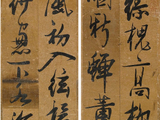 綠槐高柳
咽新蟬薰
風初入絃碧
紗窗下水沉